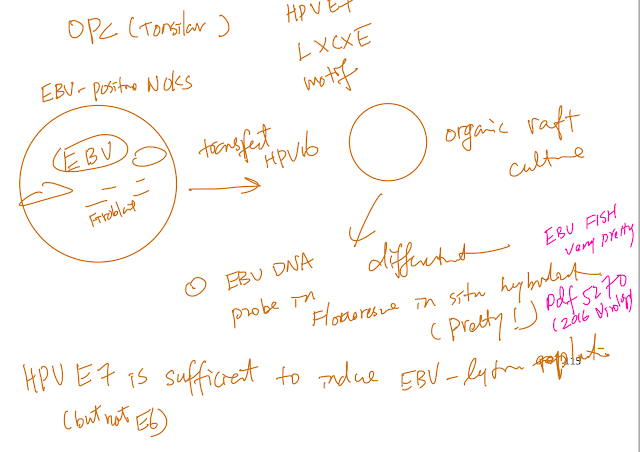 HPV E7
OPC (Tonsilar)
LXCXE
motif
EBV-positive NOKs
EBV
transfect
HPV16
organic raft
culture
Fibroblast
EBV FISH
very pretty
EBV DNA
different
probe in
Fluoresence in situ
(Pretty!)
pdf 5270
(2016 Virology)
HPV E7 is sufficient to induce EBV-lytic
(but not E6)